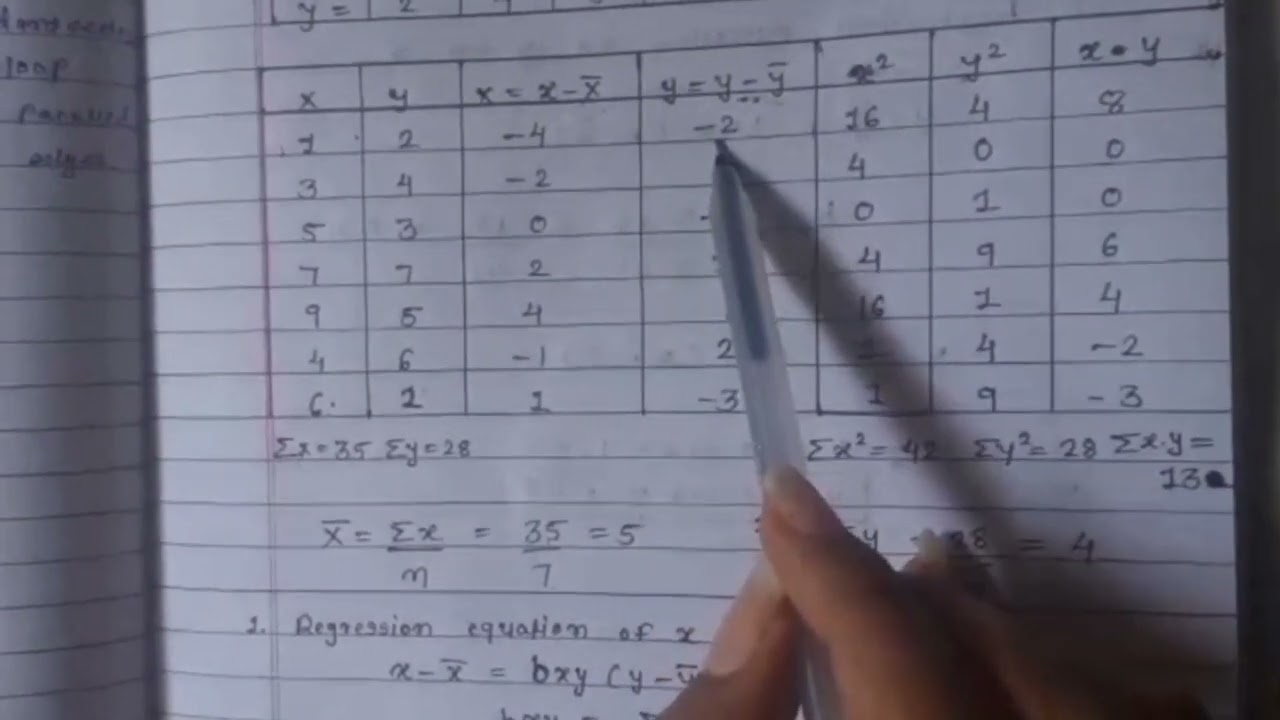 y = 2
x y x = x - x̄ y = y - ȳ x² y² x • y
1 2 -4 -2 16 4 8
3 4 -2 4 0 0
5 3 0 - 0 1 0
7 7 2 4 9 6
9 5 4 16 1 4
4 6 -1 2 1 4 -2
6. 1 1 -3 1 9 -3
Σx = 35 Σy = 28 Σx² = 42 Σy² = 28 Σx.y =
13
x̄ = Σx/n = 35/7 = 5 Σy = 28 = 4
1. Regression equation of x
x - x̄ = bxy (y - ȳ
bxy =